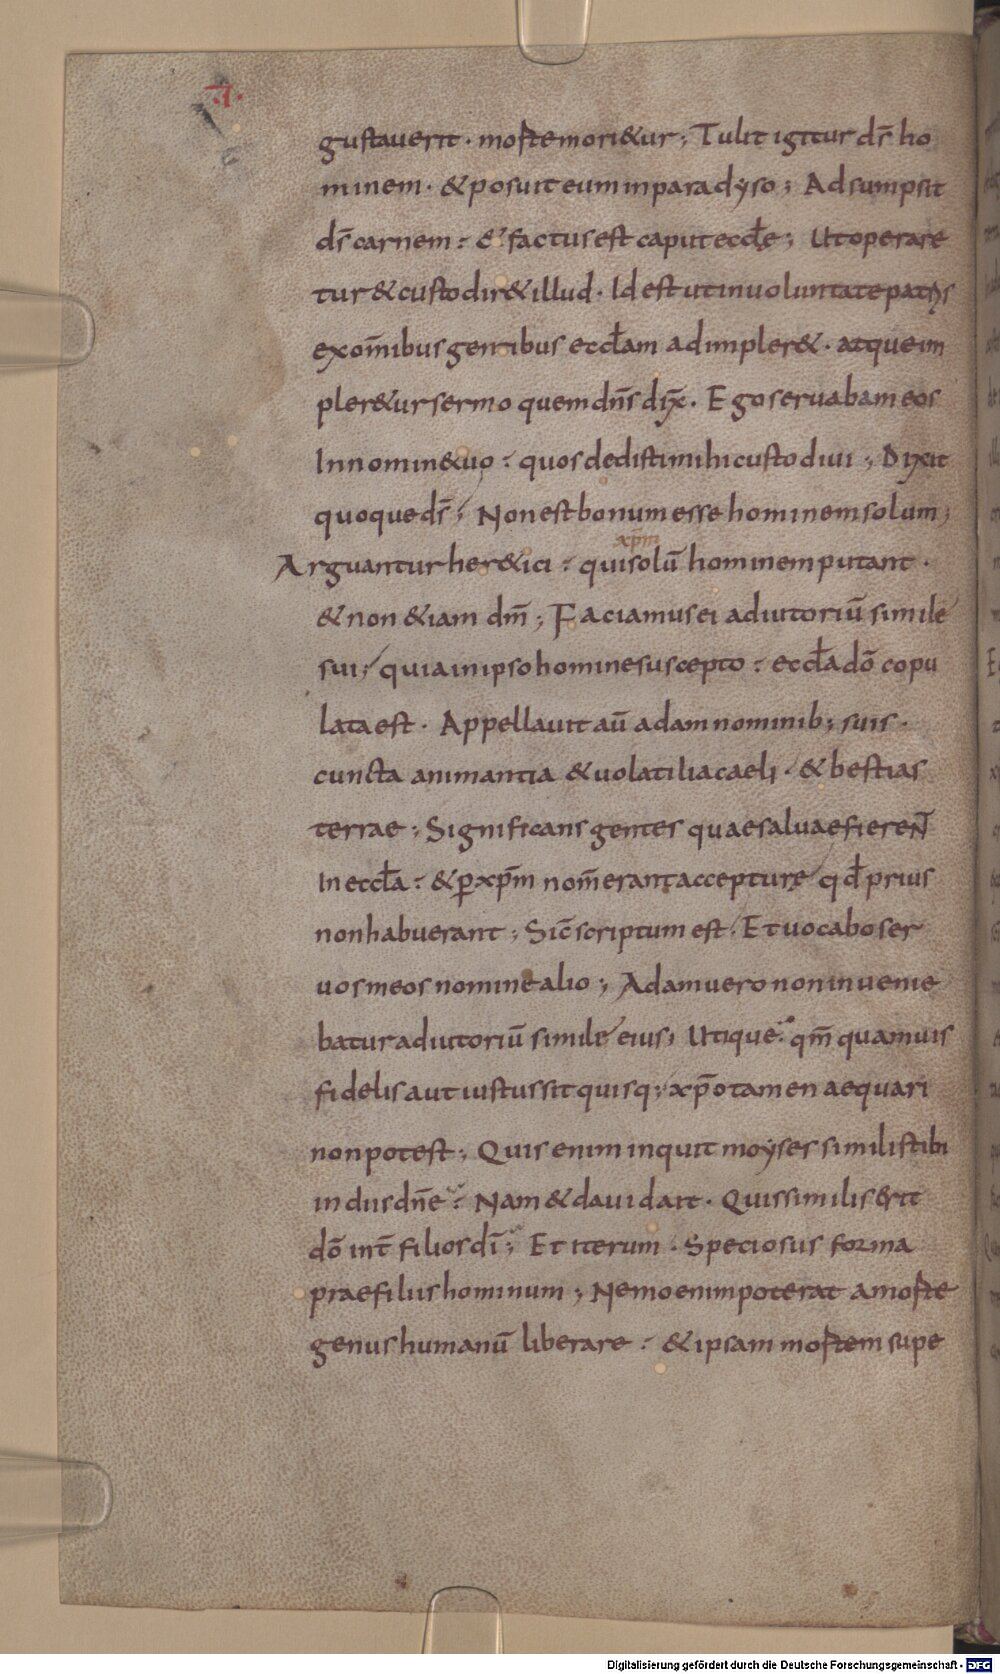 ·I·
gustauerit · morte mori&ur ; Tulit igitur ds̄ ho
minem · & posuit eum in paradyso ; Adsumpsit
ds̄ carnem : & factus est caput eccłe ; Ut operare
tur & custodir& illud · Id est ut in uoluntate patris
ex om̄ibus gentibus eccłam adimpler& · atque im
pler&ur sermo quem dn̄s dix̄ · Ego seruabam eos
In nomin& uo : quos dedisti mihi custodiui ; Dixit
quoque ds̄ ; Non est bonum esse hominem solum ;
xp̄m
Arguantur her&ici : qui solū hominem putant ·
& non &iam dm̄ ; Faciamus ei adiutoriū simile
sui ; quia in ipso homine suscepto : eccła dō copu
lata est · Appellauit aū adam nominib; suis ·
cuncta animantia & uolatilia caeli · & bestias
terrae ; Significans gentes quae saluae fierent̄
In eccła : & p̱ xp̄m nom̄ erant accepturę qđ prius
non habuerant ; Sic̄ scriptum est · Et uocabo ser
uos meos nomine alio ; Adam uero non inuenie
batur adiutoriū simile eius ; Utique · qm̄ quamuis
fidelis aut iustus sit quisq; xp̄o tamen aequari
non potest ; Quis enim inquit moyses similis tibi
in diis dn̄e : Nam & dauid ait · Quis similis erit
dō int̄ filios dī ; Et iterum · Speciosus forma
prae filiis hominum ; Nemo enim poterat a morte
genus humanū liberare : & ipsam mortem supe
Digitalisierung gefördert durch die Deutsche Forschungsgemeinschaft - DFG